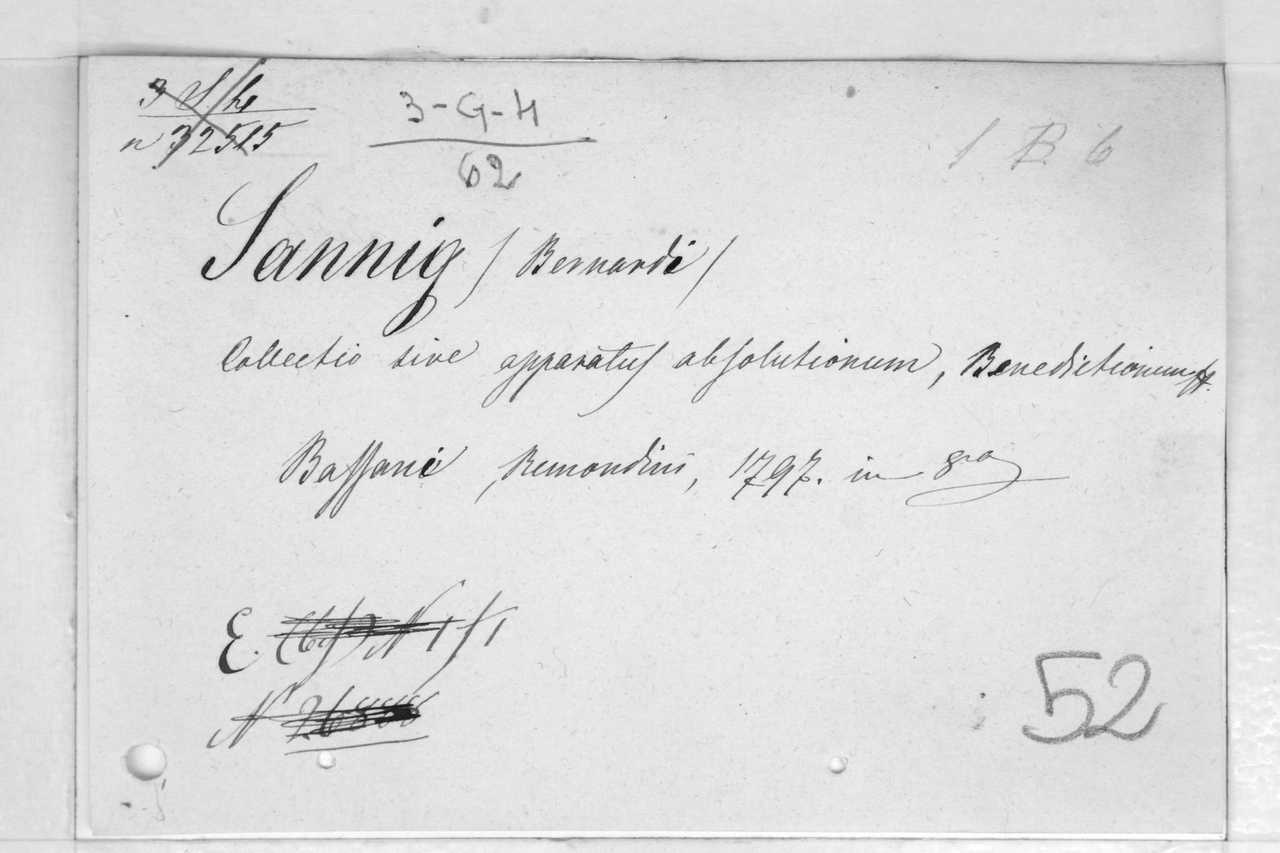 n 32515
3-G-H
62
1 B 6
Sannig / Bernardi /
Collectio sive apparatus absolutionum, Benedictionum
Bassani, Remondini, 1797. in 8vo
E.
N 26888
52